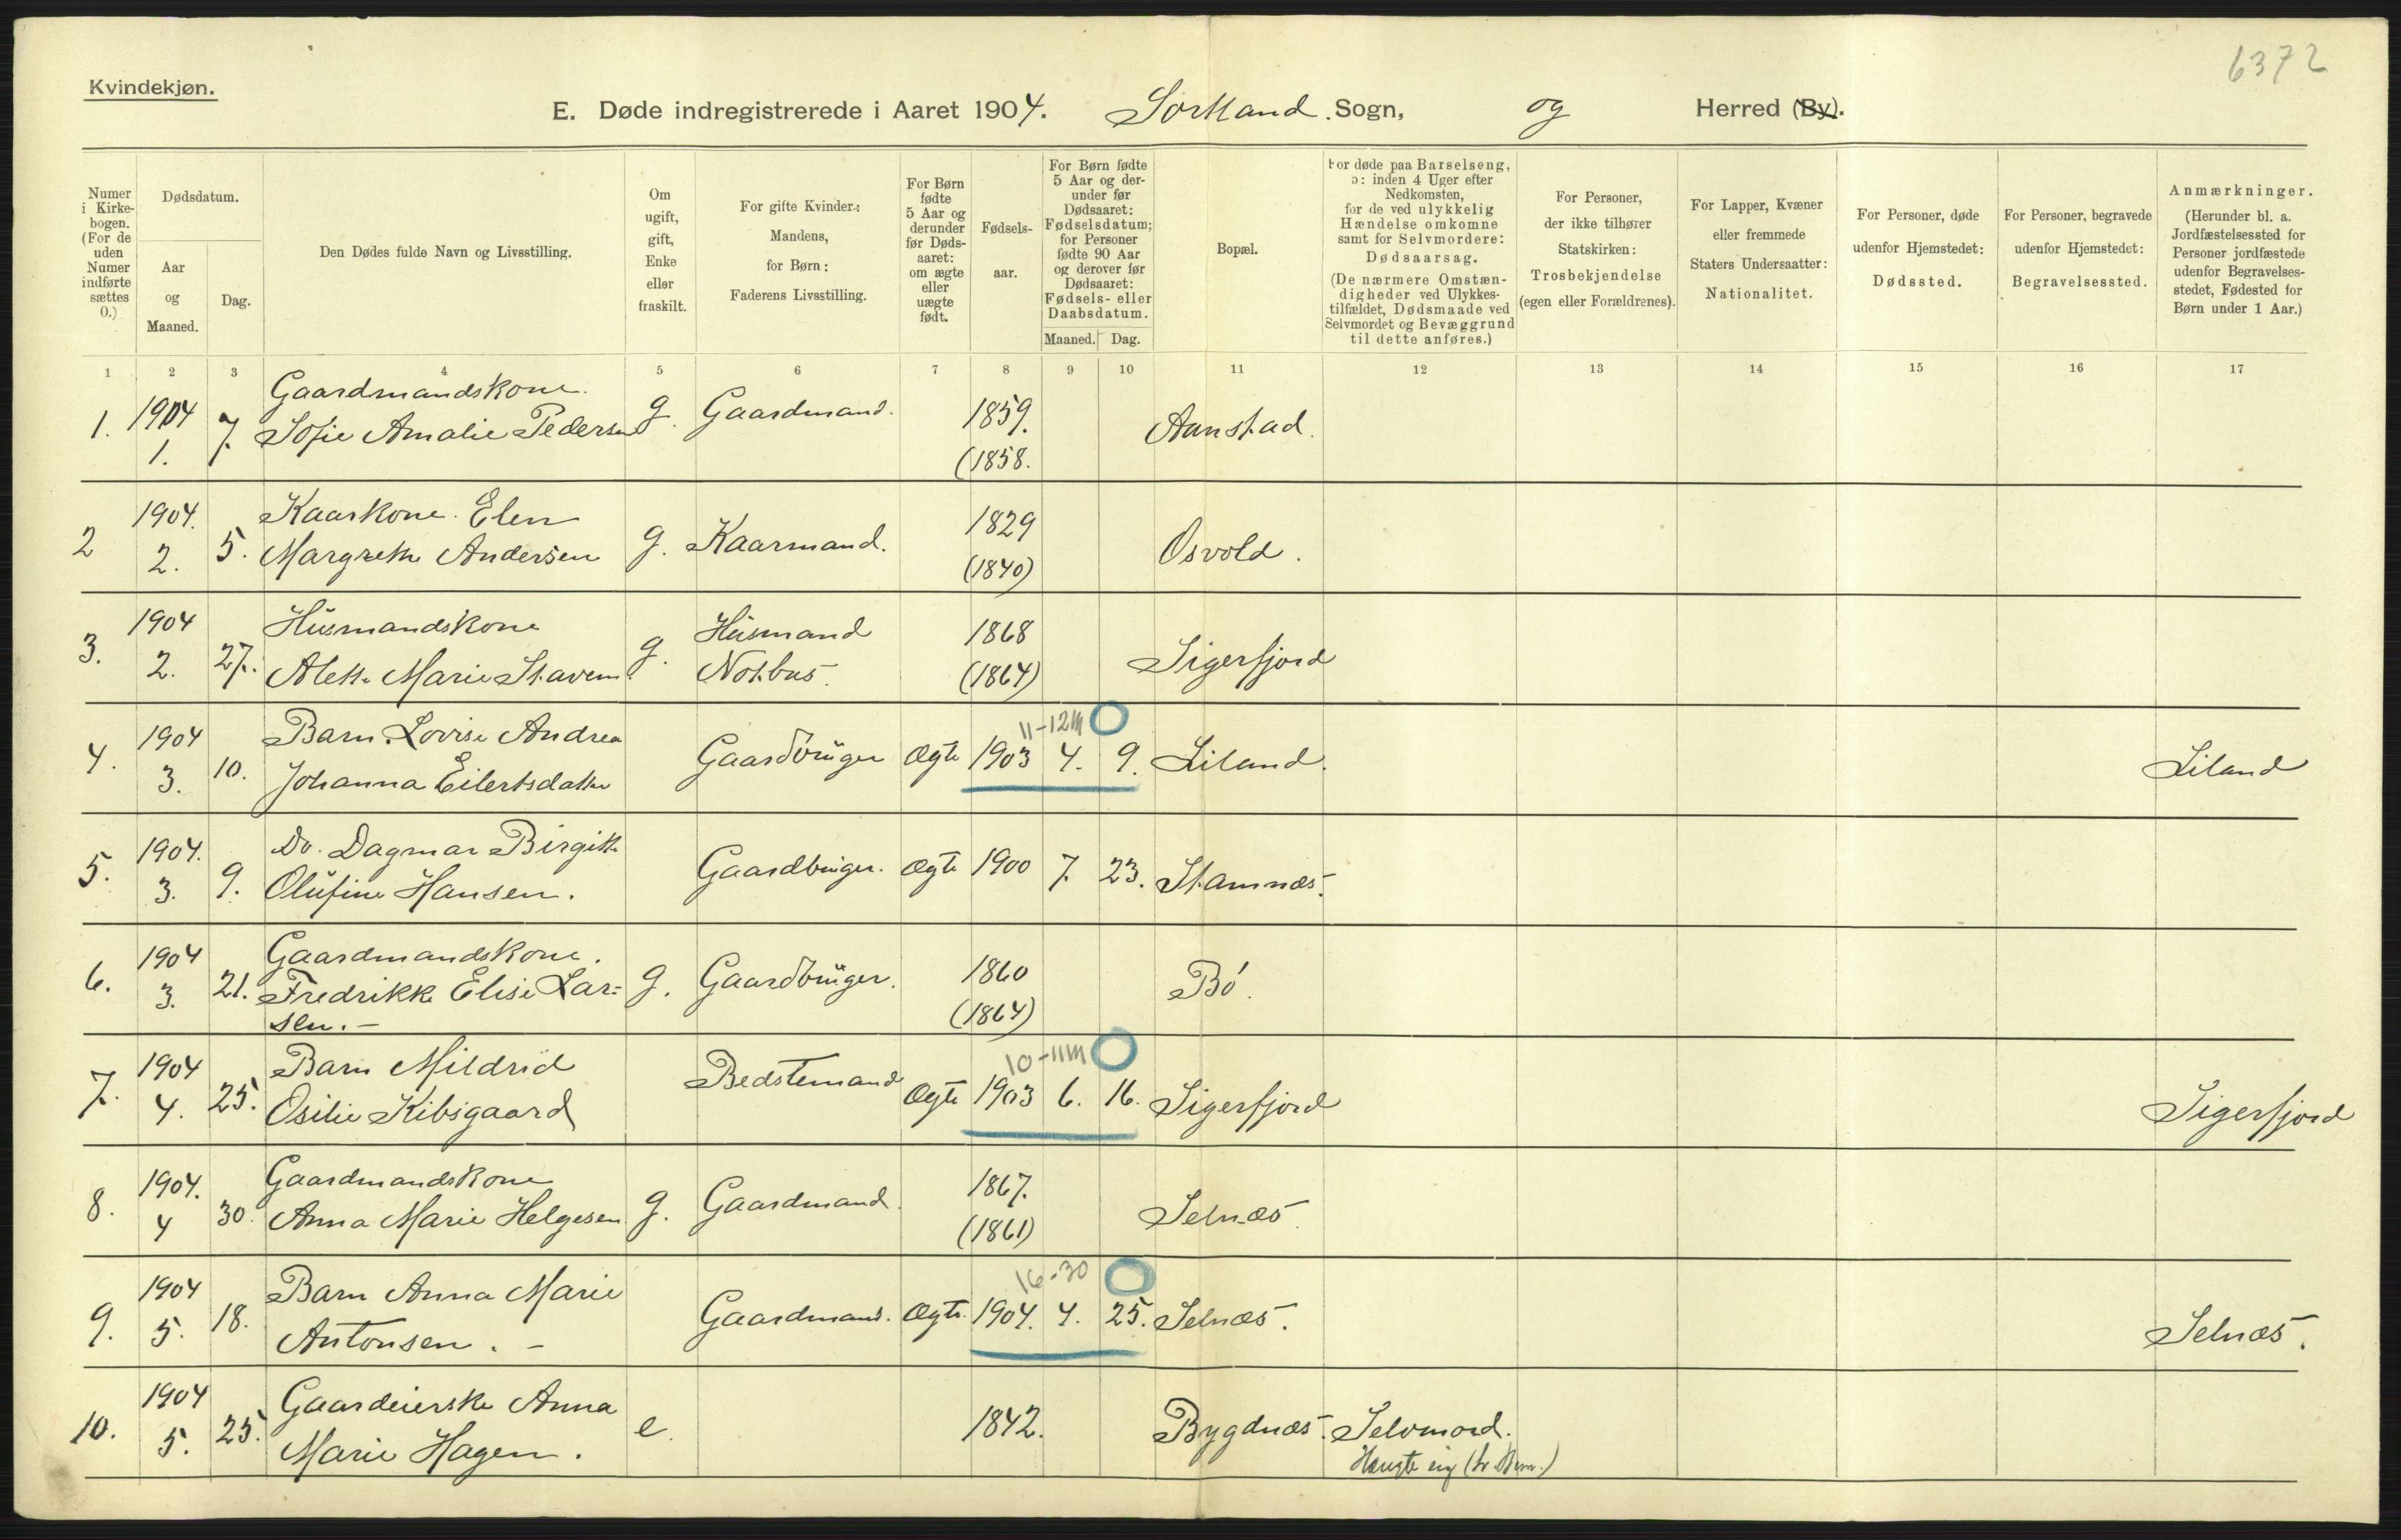 6372
Kvindekjøn.
E. Døde indregistrerede i Aaret 1904. Sortland Sogn, og Herred (By).
Numer i Kirkebogen. (For de uden Numer indførte sættes 0.)
Dødsdatum.
Aar og Maaned.
Dag.
Den Dødes fulde Navn og Livsstilling.
Om ugift, gift, Enke eller fraskilt.
For gifte Kvinder: Mandens, for Børn: Faderens Livsstilling.
For Børn fødte 5 Aar og derunder før Dødsaaret: om ægte eller uægte født.
Fødselsaar.
For Børn fødte 5 Aar og derunder før Dødsaaret: Fødselsdatum; for Personer fødte 90 Aar og derover før Dødsaaret: Fødsels- eller Daabsdatum.
Maaned. Dag.
Bopæl.
For døde paa Barselseng, ɔ: inden 4 Uger efter Nedkomsten, for de ved ulykkelig Hændelse omkomne samt for Selvmordere: Dødsaarsag. (De nærmere Omstændigheder ved Ulykkestilfældet, Dødsmaade ved Selvmordet og Bevæggrund til dette anføres.)
For Personer, der ikke tilhører Statskirken: Trosbekjendelse (egen eller Forældrenes).
For Lapper, Kvæner eller fremmede Staters Undersaatter: Nationalitet.
For Personer, døde udenfor Hjemstedet: Dødssted.
For Personer, begravede udenfor Hjemstedet: Begravelsessted.
Anmærkninger. (Herunder bl. a. Jordfæstelsessted for Personer jordfæstede udenfor Begravelsesstedet, Fødested for Børn under 1 Aar.)
1 2 3 4 5 6 7 8 9 10 11 12 13 14 15 16 17
1. 1904 1. 7. Gaardmandskone. Sofie Amalie Pedersen g. Gaardmand. 1859. (1858. Aanstad.
2 1904. 2. 5. Kaarkone Elen Margrethe Andersen g. Kaarmand. 1829 (1840) Osvold.
3. 1904 2. 27. Husmandskone Alette Marie Stavem g. Husmand Notbas. 1868 (1864) Sigerfjord
4. 1904 3. 10. Barn Lovise Andrea Johanna Eilertsdatter Gaardbruger Ægte 11-12 m 1903 4. 9. Liland. Liland
5. 1904. 3. 9. Do. Dagmar Birgitte Olufine Hansen. Gaardbruger. Ægte 1900 7. 23. Stamnæs.
6. 1904 3. 21. Gaardmandskone. Fredrikke Elise Larsen. - g. Gaardbruger. 1860 (1864) Bö.
7. 1904 4. 25. Barn Mildrid Osilie Kibsgaard Bedstemand Ægte 10-11 m 1903 6. 16. Sigerfjord Sigerfjord
8. 1904. 4 30. Gaardmandskone Anna Marie Helgesen g. Gaardmand. 1867. (1861) Selnæs.
9. 1904 5. 18. Barn Anna Marie Antonsen. - Gaardmand. Ægte. 16-30 1904. 4. 25. Selnæs. Selnæs.
10. 1904 5. 25. Gaardeierske Anna Marie Hagen. e. 1842. Bygdnæs. Selvmord.
Hængte sig